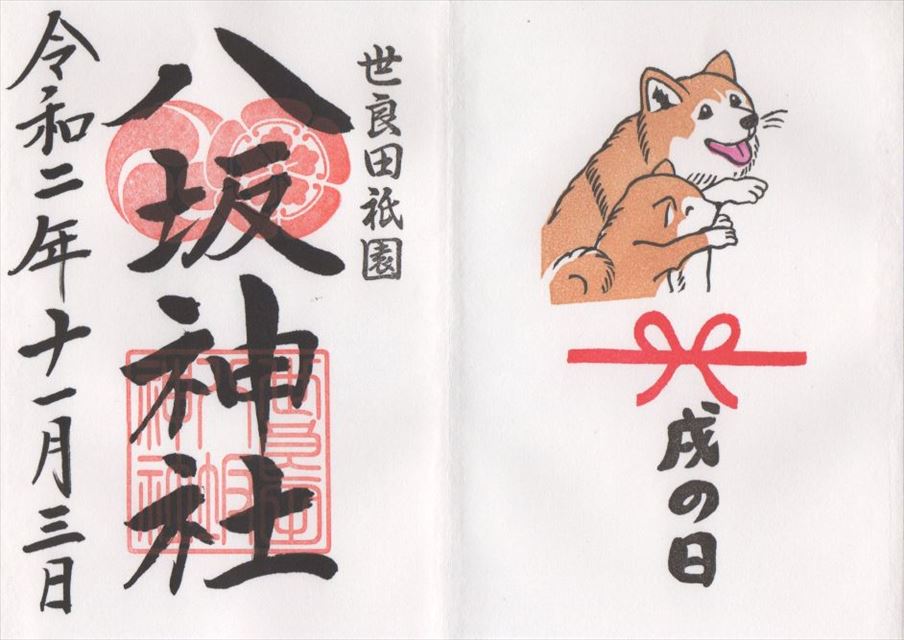 世良田祇園
八坂神社
令和二年十一月三日
戌の日